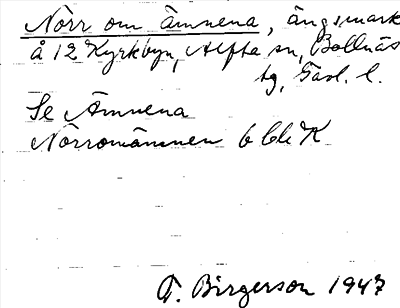 Norr om ämnena, ängsmark
å 12 Kyrkbyn, Alfta sn, Bollnäs
tg, Gävl. l.
Se Ämnena
Norromämnen 6 bl. K
T. Birgerson 1947